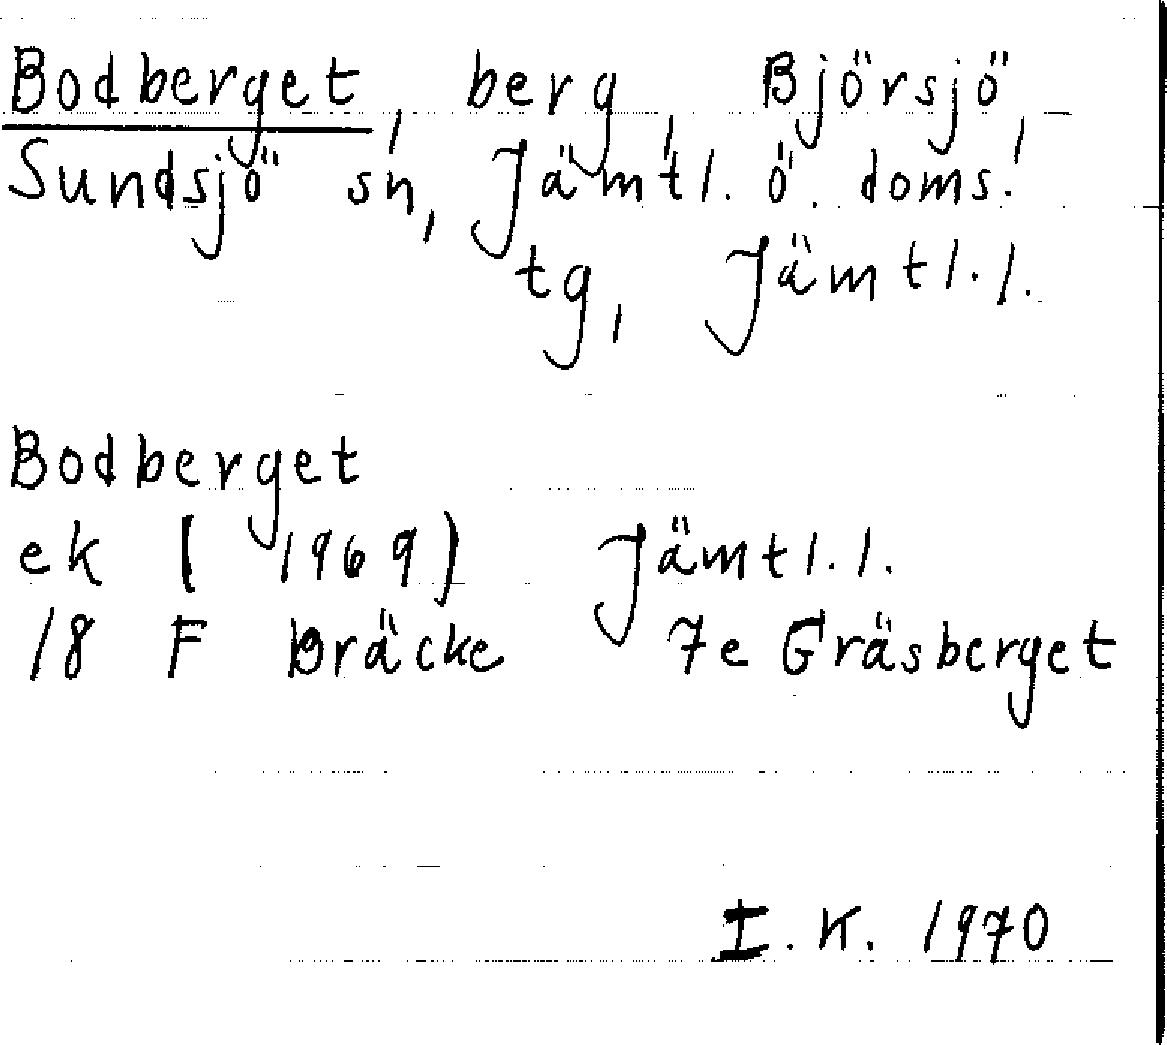 Bodberget, berg, Björsjö,
Sundsjö sn, Jämtl. ö. doms.
tg, Jämtl. l.
Bodberget
ek (1969) Jämtl. l.
18 F Bräcke 7e Gräsberget
I. K. 1970